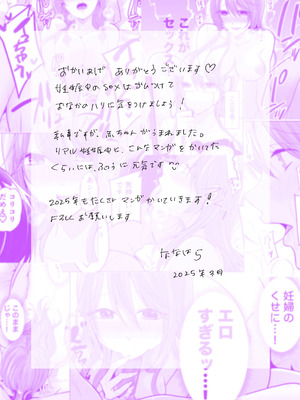 これが
セックス
おかいあげ ありがとうございます♡
妊娠中のSEXはゴムつけて
おなかのハリに気をつけましょう!
私事ですが、赤ちゃんがうまれました。
リアル妊娠中も、こんなマンガをかいてた
くらいには、ふつうに元気です
2025年もたくさん マンガかいていきます!
よろしくお願いします
ななはら
2025年3月
コリコリ
だめぇ
妊婦の
くせに…!
エロ
すぎるッ……!
このまま
じゃ…